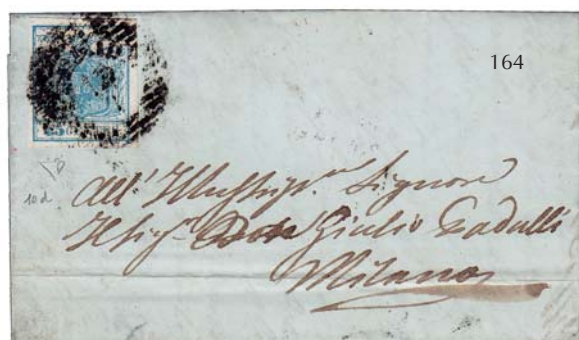 164
10 d
All' Illustrig.mo Signore
Il Sig.r Don Giulio Padulli
Milano